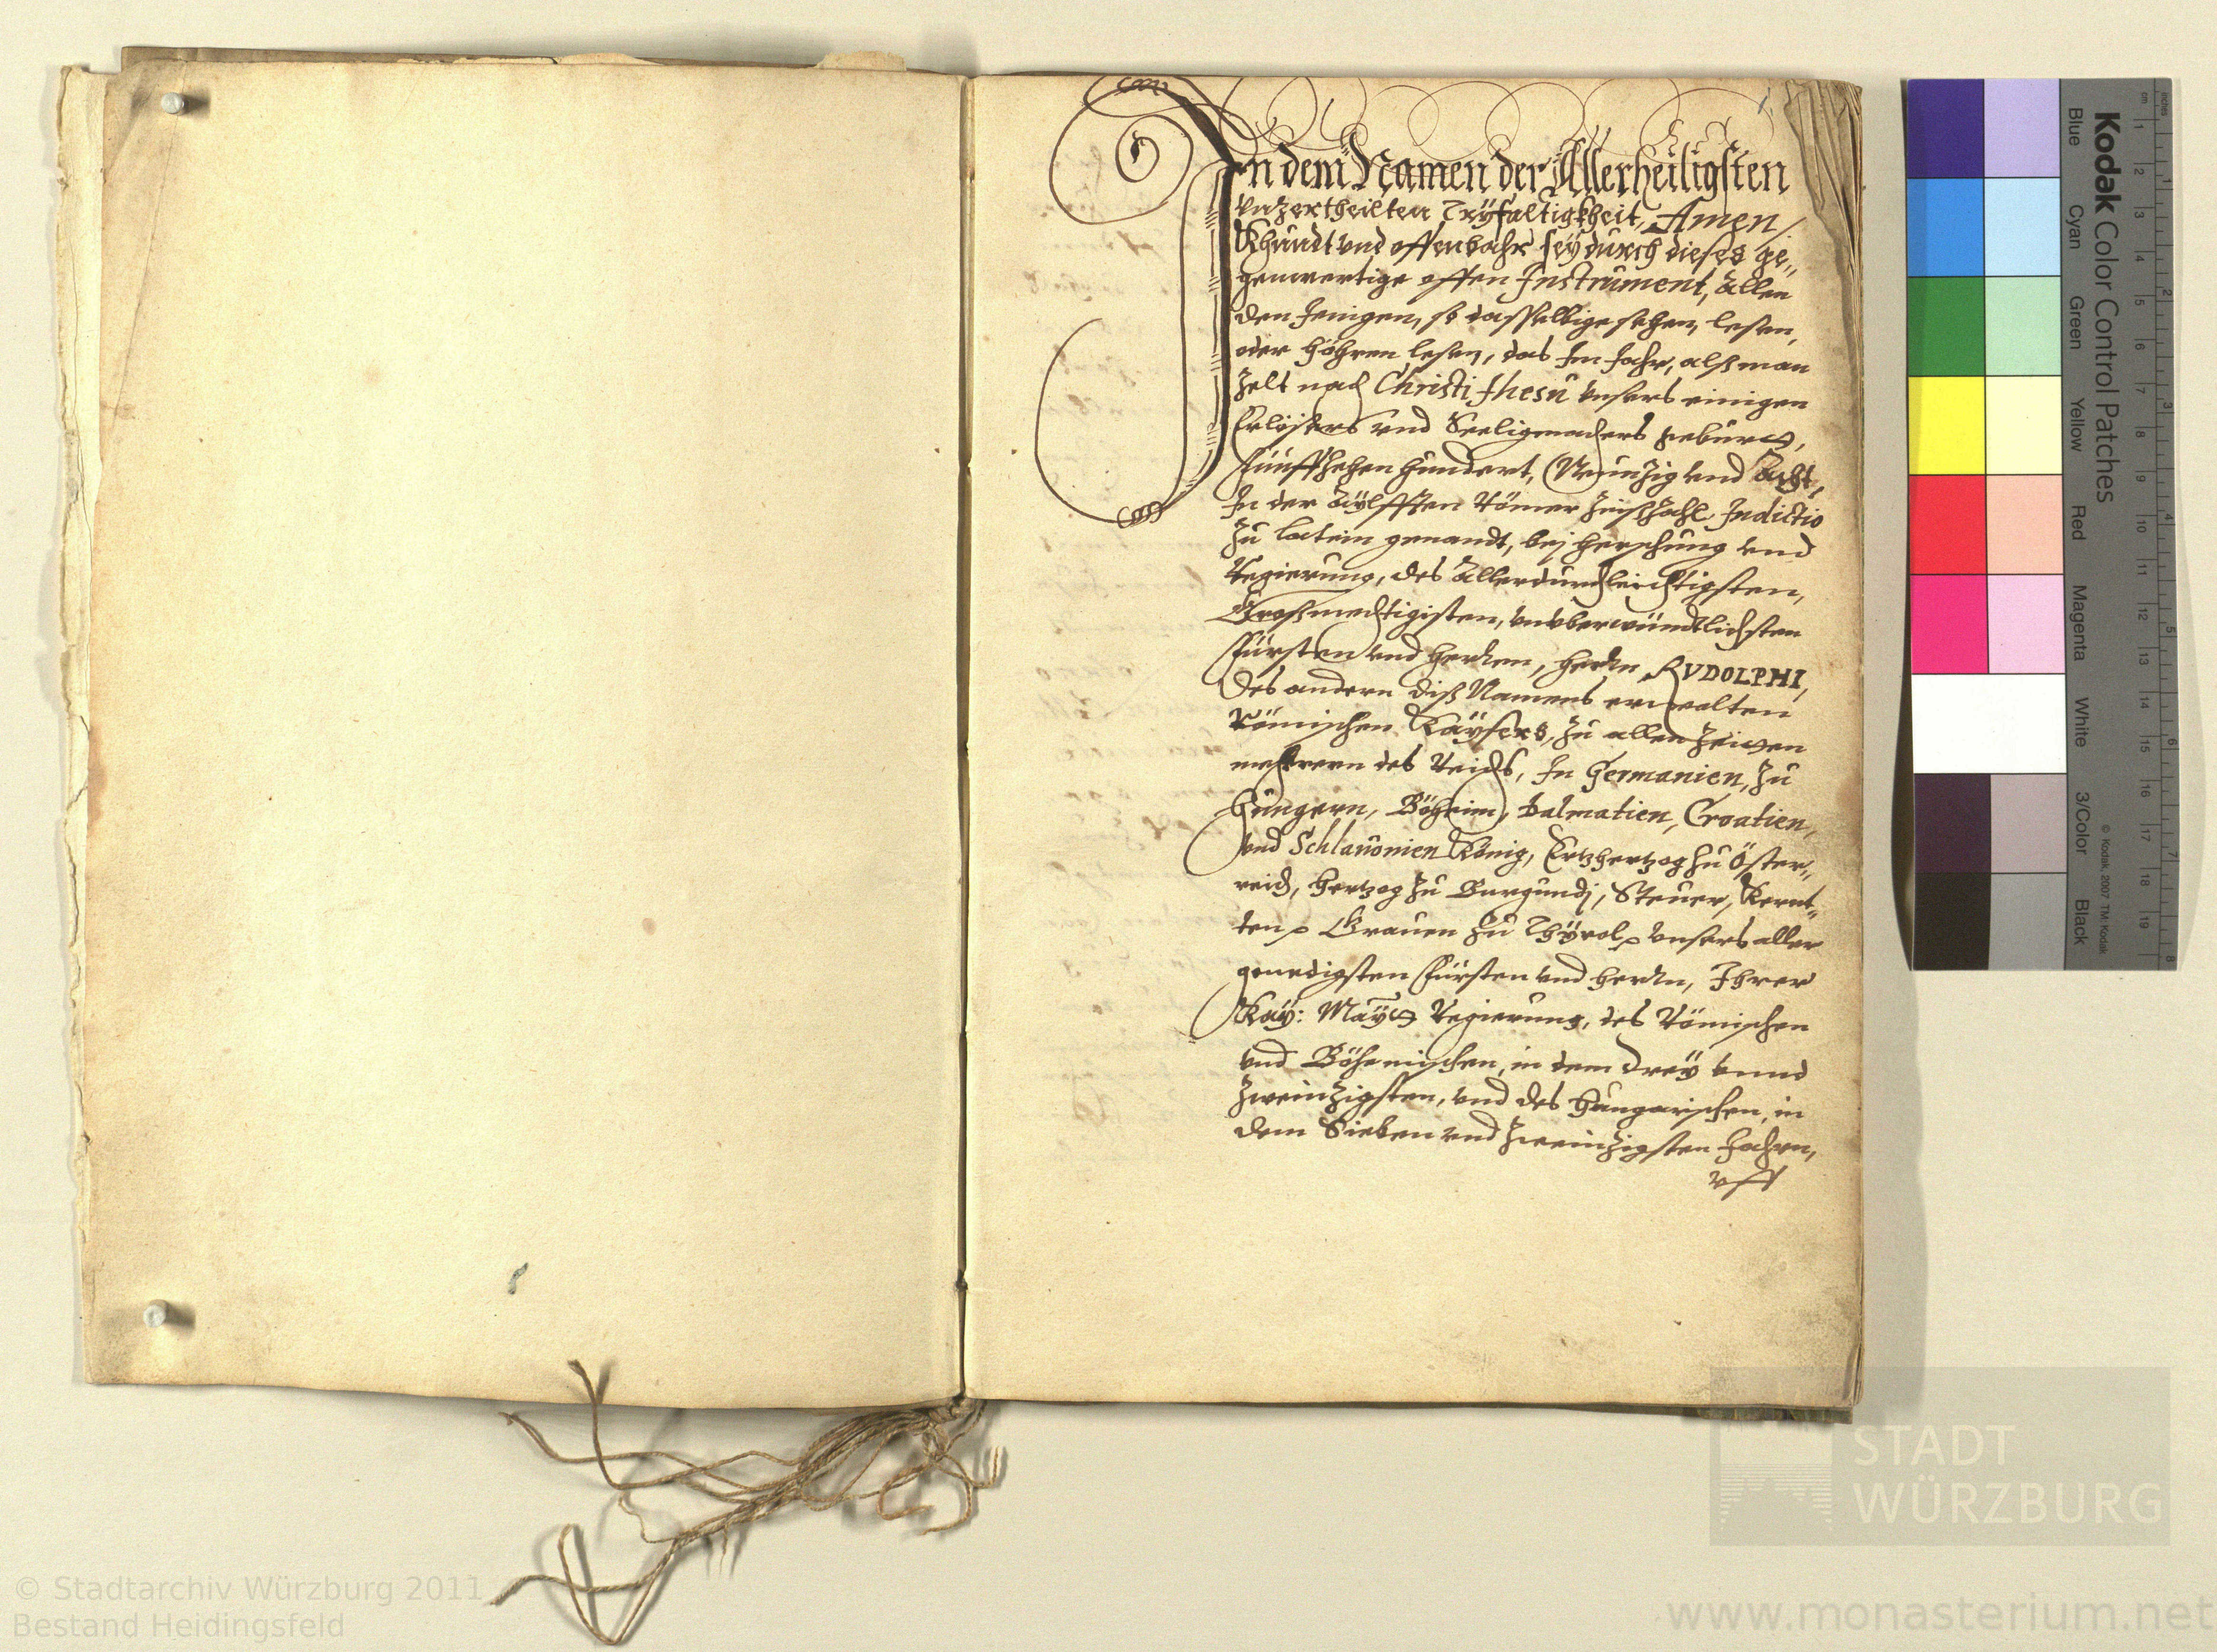 In dem Namen der Allerheiligsten
vnzertheilten Tryfaltigkheit, Amen,
Khundt vnd offenbahr sey durch dieses ge„
genwertige offen Instrument, allen
den Jenigen, so dasselbige sehen, lesen,
oder höhren lesen, das Im Jahr, alß man
zelt nach Christi Jhesu vnsers einigen
Erlösers vnd Seeligmachers geburt,
Fünffzehen hundert, Neunzig vnd Acht,
In der Aÿlfften Römer Zinßzahl Indictio
zu latein genandt, bej herschung vnd
Regierung, des Allerdurchleichtigsten,
Großmechtigisten, vnvberwündtlichsten
Fürsten vnd Herrn, Herrn RVDOLPHI,
des andern diß Namens erwalten
Römischen Kaÿsers, zu allen Zeitten
mehrern des Reichs, In Germanien, zu
Hungern, Böheim, Dalmatien, Croatien,
vnd Schlauonien König, Ertzhertzog zu Öster„
reich, Hertzog zu Burgundj, Steuer, Kernt„
ten Grauen zu Thÿrol vnsers aller
genedigsten Fürsten vnd Herrn, Ihrer
Kaÿ: Maÿt Regierung, des Römischen
vnd Böhemischen, in dem dreÿ vnnd
zweinzigsten, vnd des Hungarischen, in
dem Sieben vnd zweinzigsten Jahren,
vff
Kodak Color Control Patches
Blue Cyan Green Yellow Red Magenta White 3/Color Black
© Kodak, 2007 TM: Kodak
cm 1 2 3 4 5 6 7 8 9 10 11 12 13 14 15 16 17 18 19
inches 1 2 3 4 5 6 7 8
STADT
WÜRZBURG
© Stadtarchiv Würzburg 2011
Bestand Heidingsfeld
www.monasterium.net